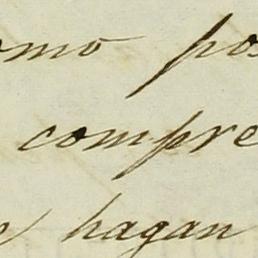 omo po
compre
hagan